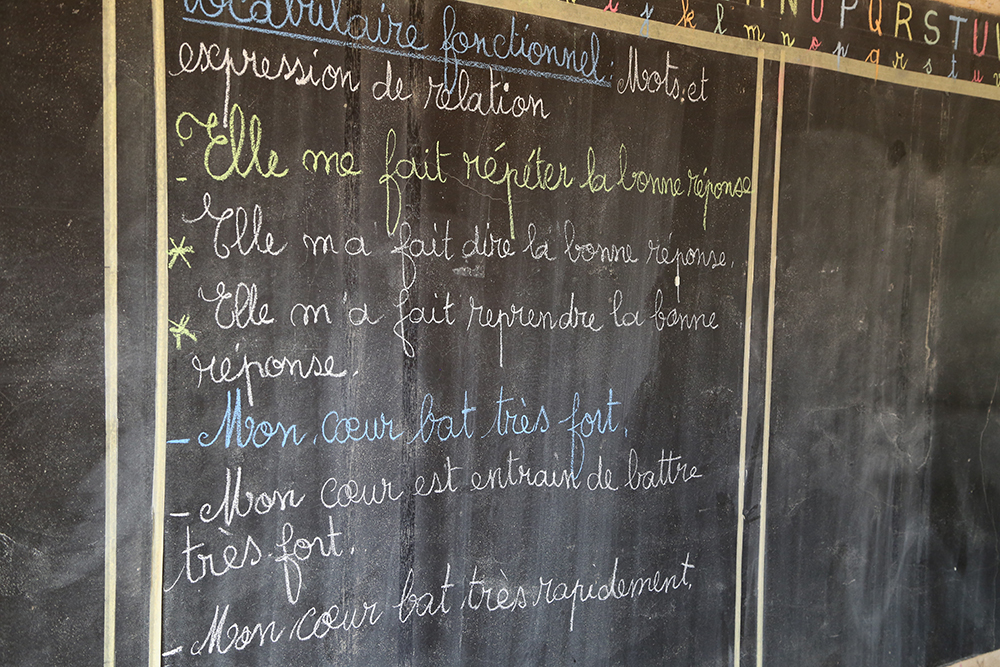 j k l m n o p q r s t u
N U P Q R S T U
vocabulaire fonctionnel: Mots et
expression de relation
- Elle me fait répéter la bonne réponse
* Elle m a fait dire la bonne réponse.
* Elle m a fait reprendre la bonne
réponse.
- Mon cœur bat très fort.
- Mon cœur est entrain de battre
très fort.
- Mon cœur bat très rapidement.